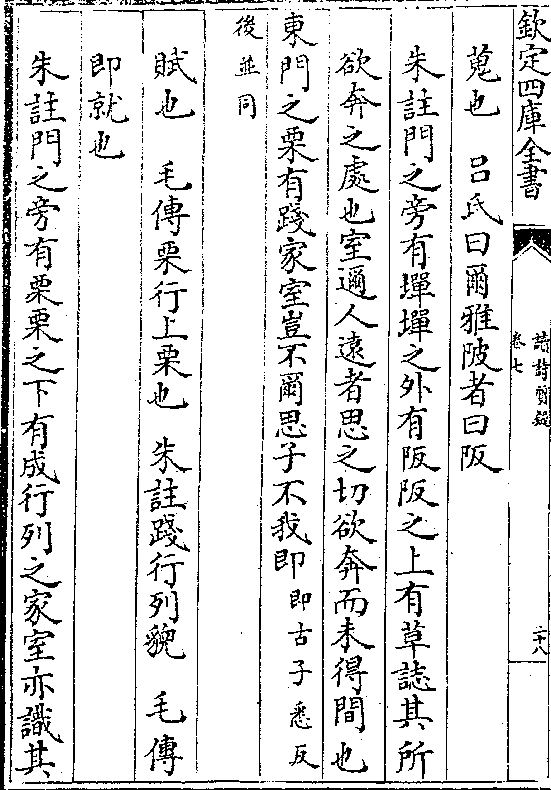 欽定四庫全書
蒐也　呂氏曰爾雅陂者曰阪
朱註門之旁有墠墠之外有阪阪之上有草誌其所
欲奔之處也室邇人遠者思之切欲奔而未得間也
東門之栗有踐家室豈不爾思子不我即即古子悉反
後並同
賦也　毛傳栗行上栗也　朱註踐行列貌　毛傳
即就也
朱註門之旁有栗栗之下有成行列之家室亦識其
卷七
二十八